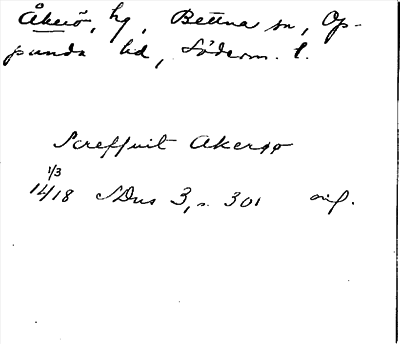 Åkerö, hg, Bettna sn, Op-
punda hd, Söderm. l.
Screffuit Akerøø
1/3
1418 SDns 3, s. 301 orig.